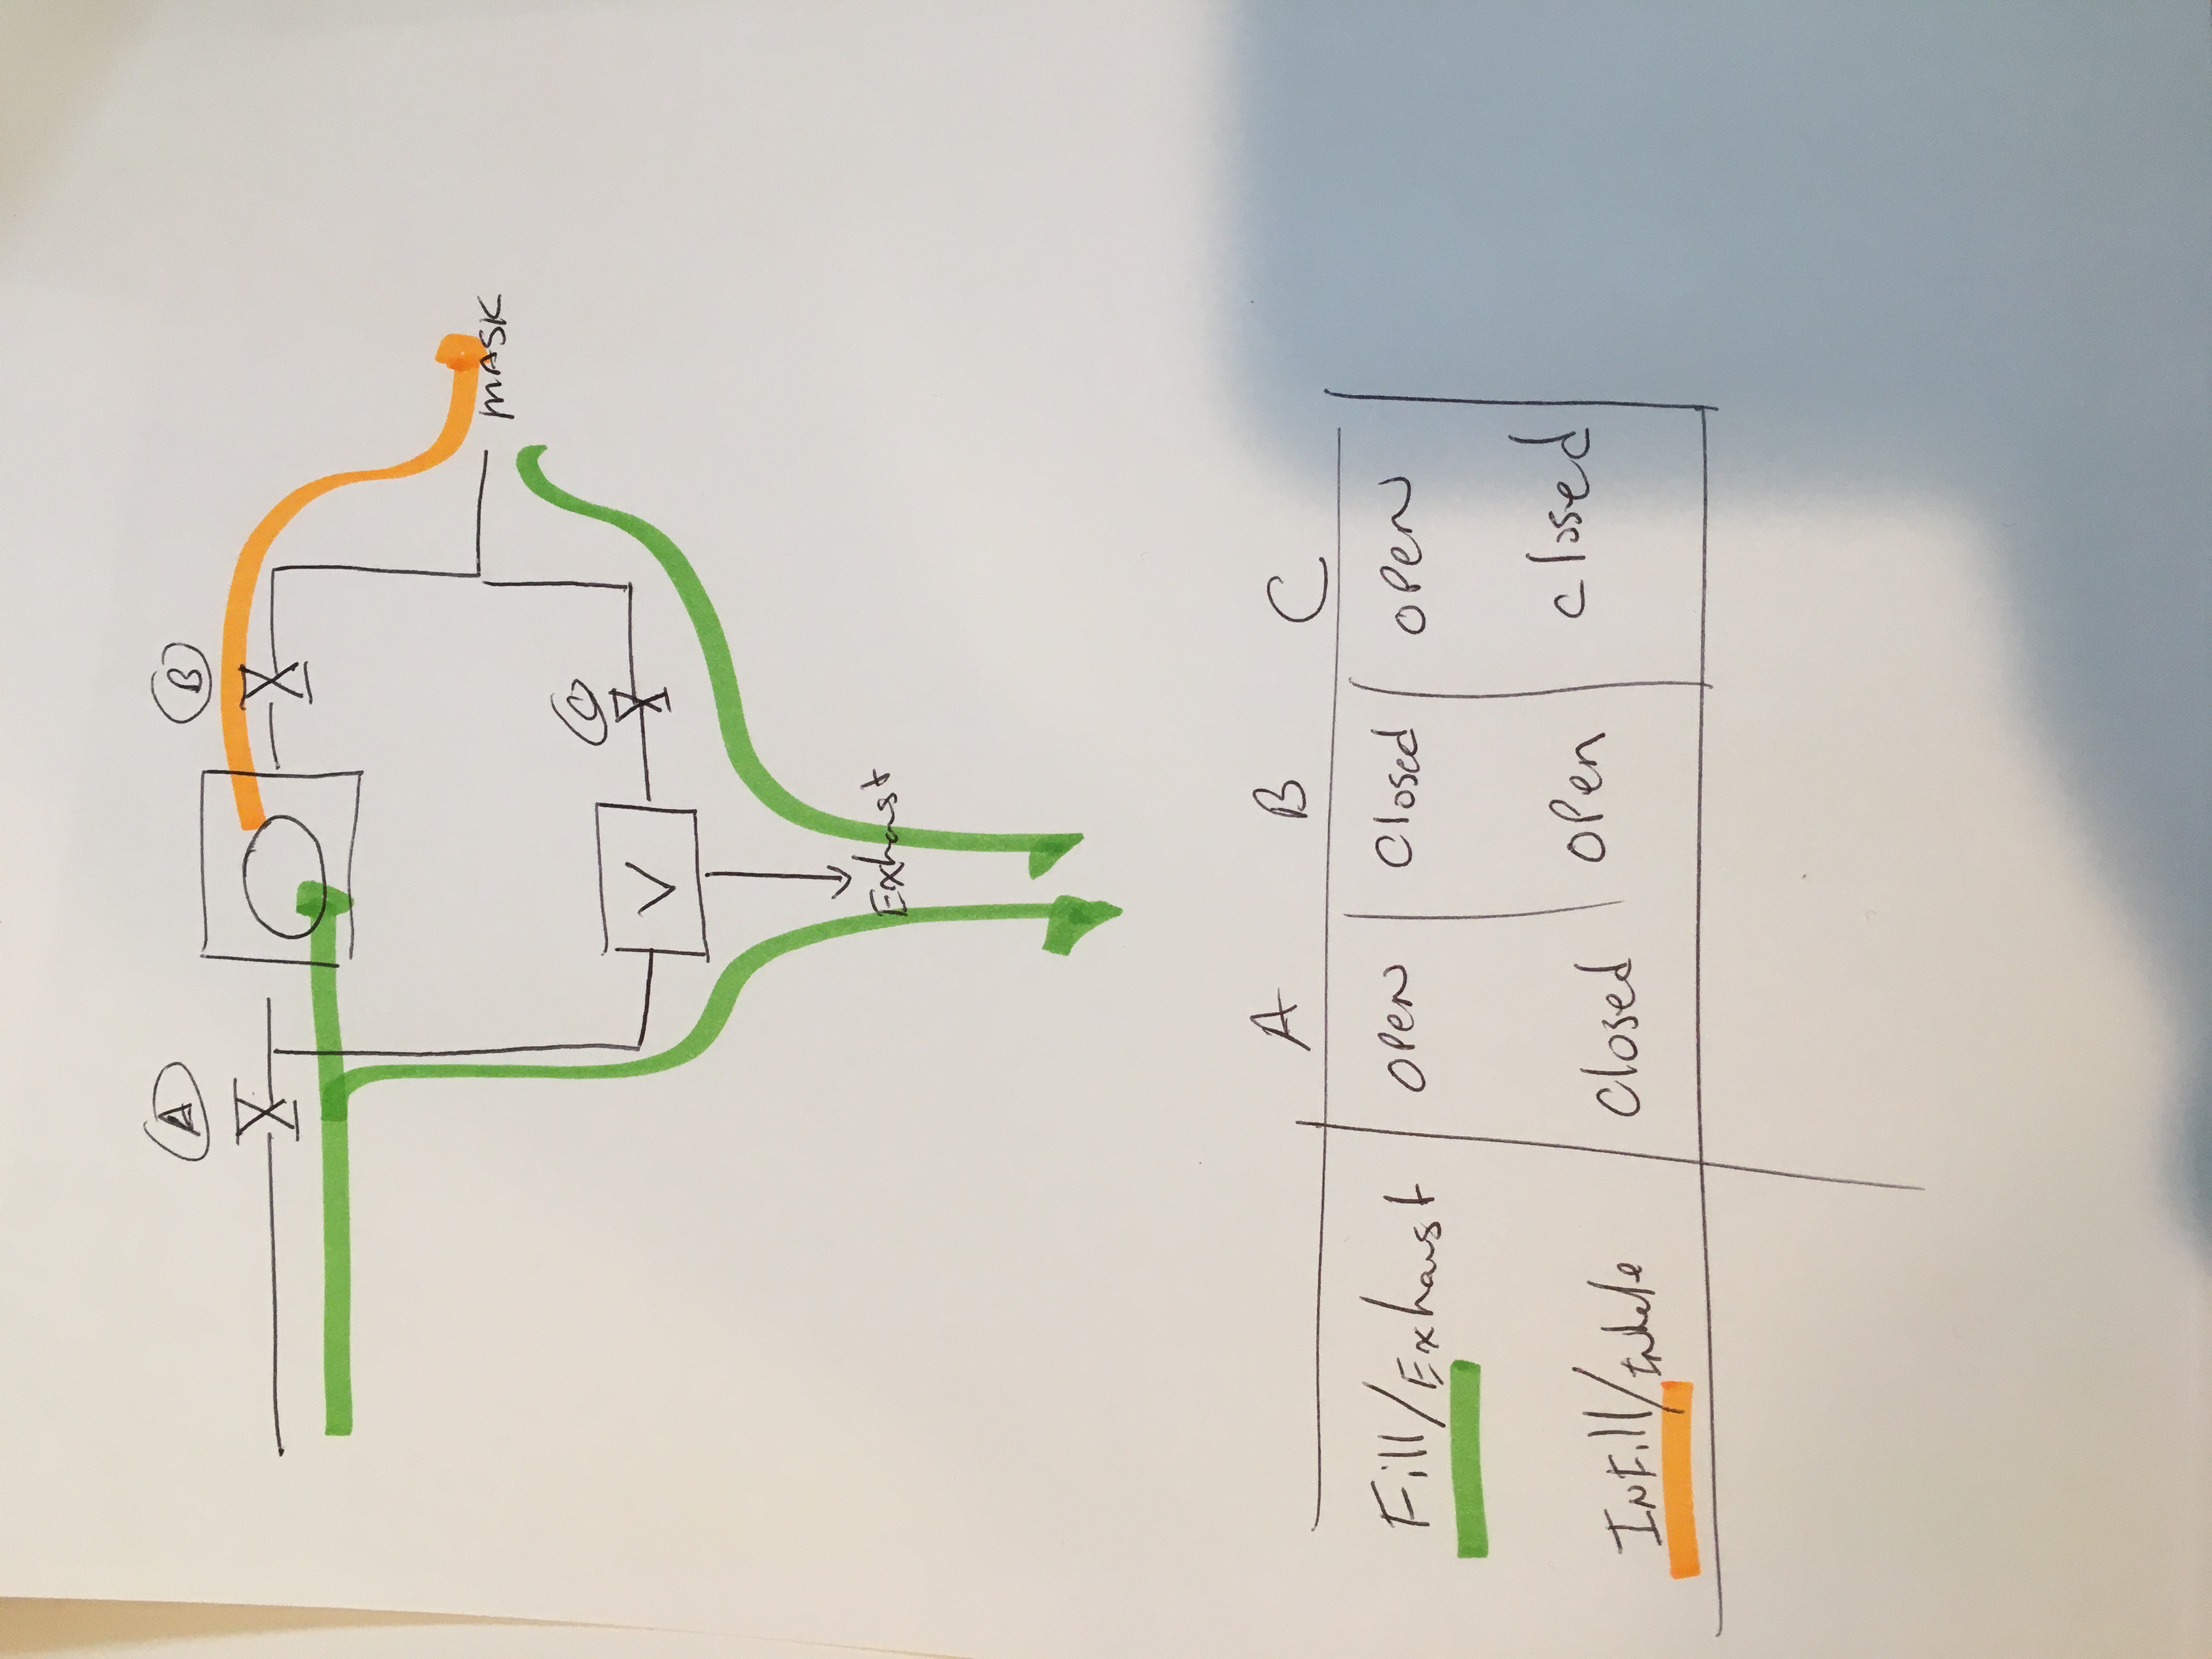 A
B
MASK
C
V
Exhaust
A B C
Fill/Exhaust OPEN Closed OPEN
InFill/Inhale Closed OPen closed